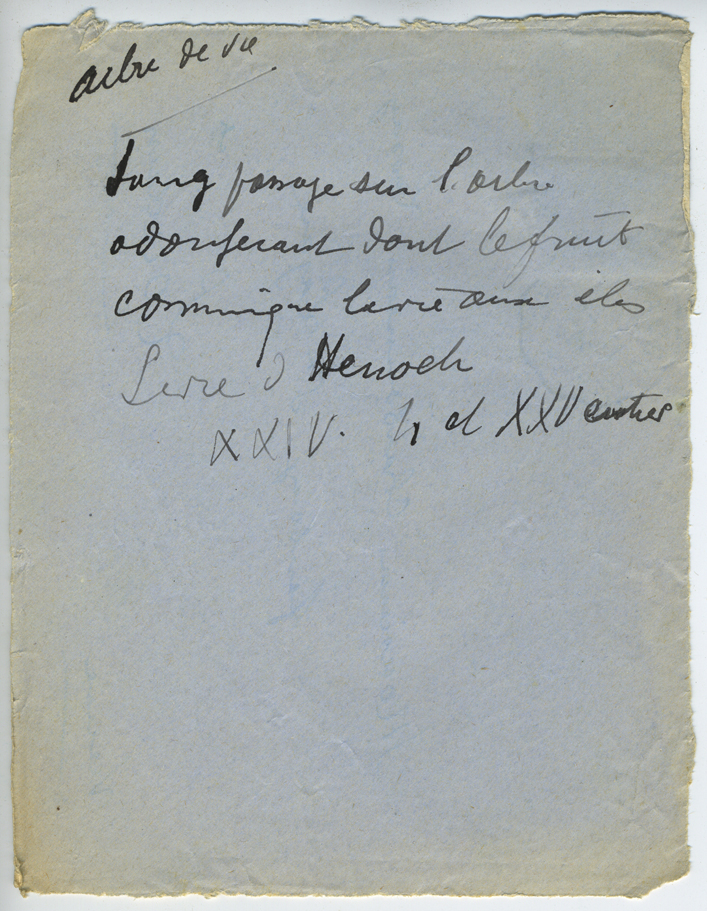 arbre de vie
Long passage sur l'arbre
odoriferant dont le fruit
comunique la vie aux élus
Livre d Henoch
XXIV. 4 et XXV entier